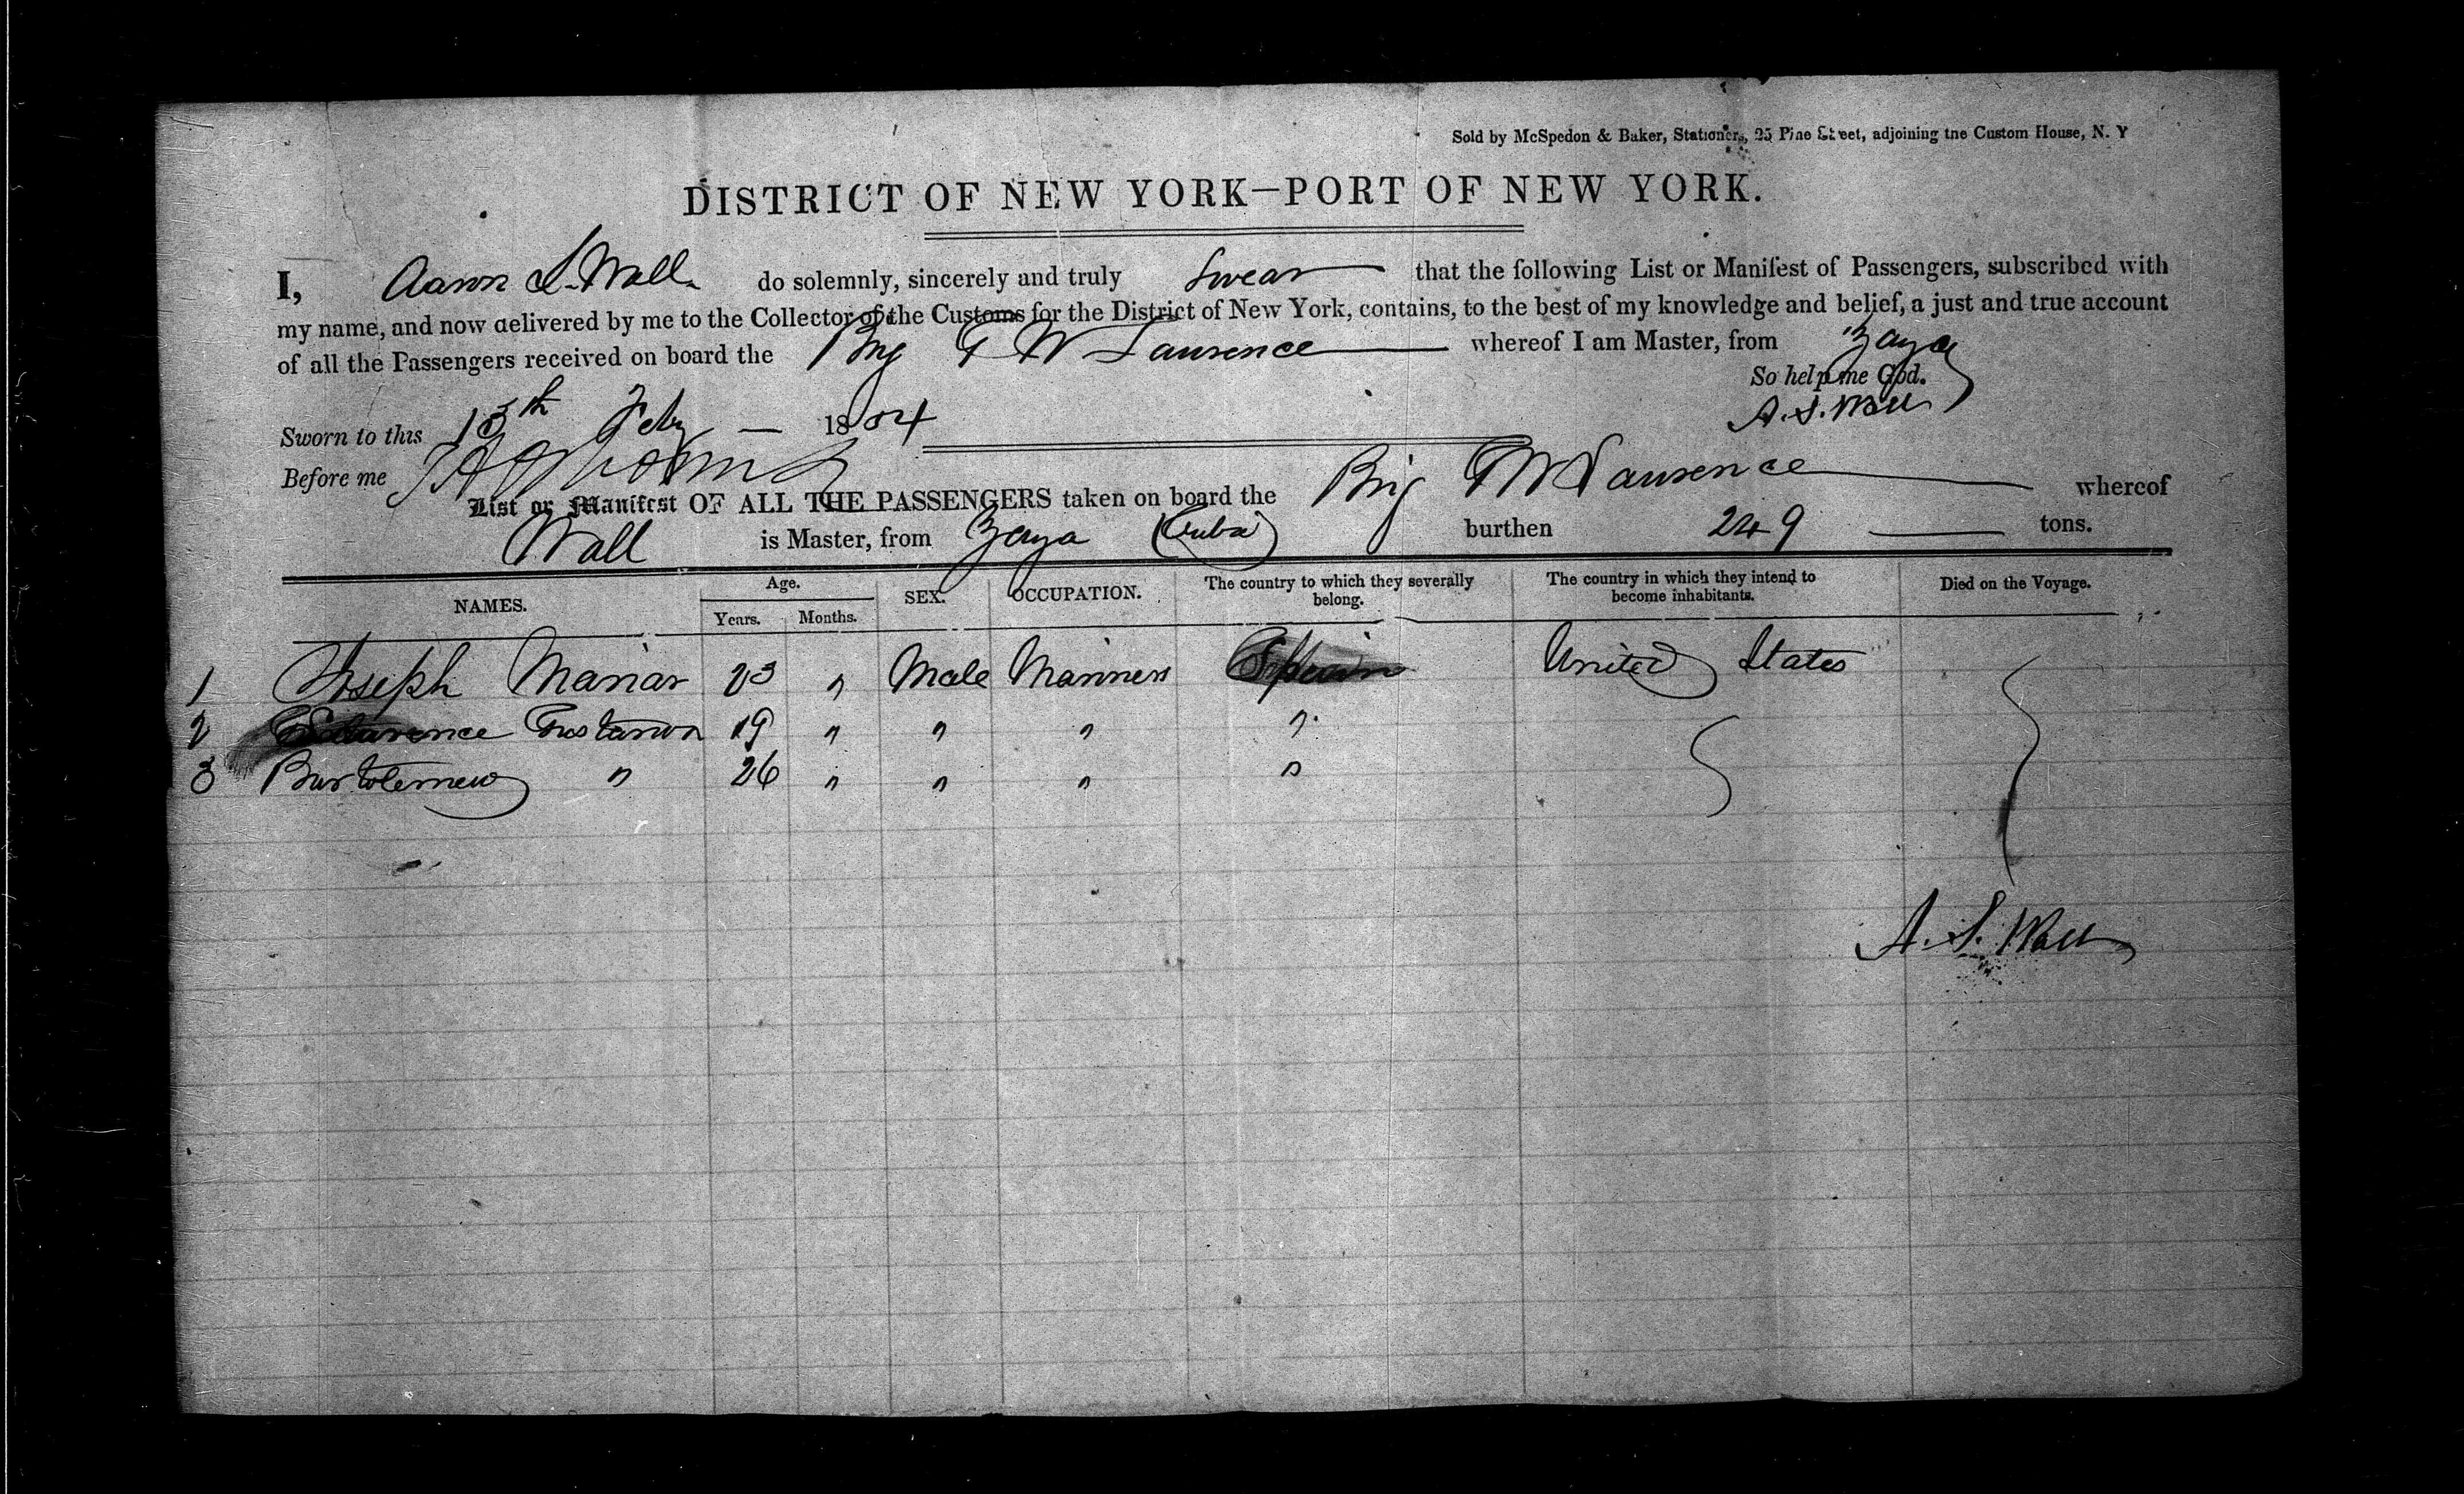 Sold by McSpedon & Baker, Stationers, 25 Pine Street, adjoining the Custom House, N. Y
DISTRICT OF NEW YORK—PORT OF NEW YORK.
I, Aaron S. Wall do solemnly, sincerely and truly Swear that the following List or Manifest of Passengers, subscribed with
my name, and now delivered by me to the Collector of the Customs for the District of New York, contains, to the best of my knowledge and belief, a just and true account
of all the Passengers received on board the Brig T W Laurence whereof I am Master, from Zaza
So help me God.
A. S. Wall
Sworn to this 13th Feby 1854
Before me
List or Manifest OF ALL THE PASSENGERS taken on board the Brig T W Laurence whereof
Wall is Master, from Zaza (Cuba) burthen 249 tons.
NAMES. Age. Years. Months. SEX. OCCUPATION. The country to which they severally belong. The country in which they intend to become inhabitants. Died on the Voyage.
1 Joseph Marias 23 " Male Mariners Spain United States
2 19 " " " "
3 Bartolemew " 26 " " " "
A. S. Wall